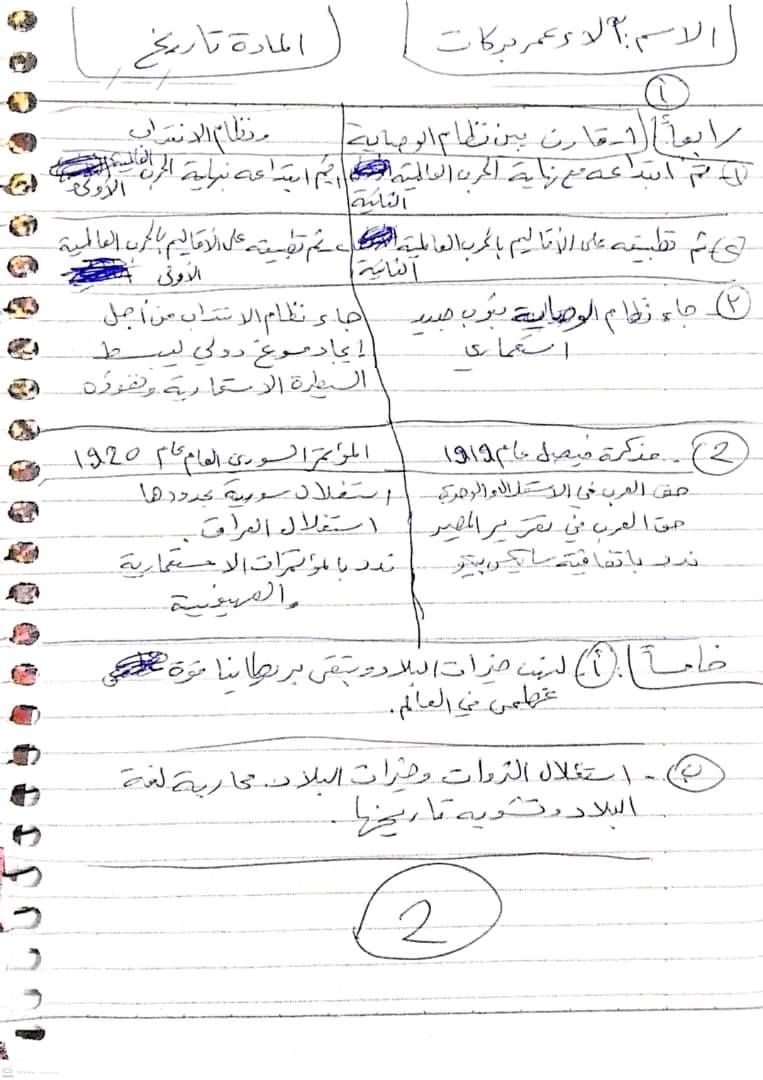 الاسم: آلاء عمر بركات
المادة تاريخ
رابعاً 1- قارن بين نظام الوصاية ونظام الانتداب
1) تم ابتداعه مع نهاية الحرب العالمية الثانية
تم ابتداعه نهاية الحرب العالمية الأولى
2) تم تطبيقه على الأقاليم بالحرب العالمية الثانية
تم تطبيقه على الأقاليم بالحرب العالمية الأولى
٣- جاء نظام الوصاية بثوب جديد
استعماري
جاء نظام الانتداب من أجل
إيجاد مسوغ دولي لبسط
السيطرة الاستعمارية ونفوذه
2- مذكرة فيصل عام 1919
حق العرب في الاستقلال والوحدة
حق العرب في تقرير المصير
ندد باتفاقية سايكس بيكو
المؤتمر السوري العام عام 1920
استقلال سورية بحدودها
استقلال العراق.
ندد بالمؤتمرات الاستعمارية
والصهيونية
خامساً: أ- لنهب خيرات البلاد وتبقى بريطانيا قوة
عظمى في العالم.
ب- استغلال الثروات وخيرات البلاد. محاربة لغة
البلاد وتشويه تاريخها.
2